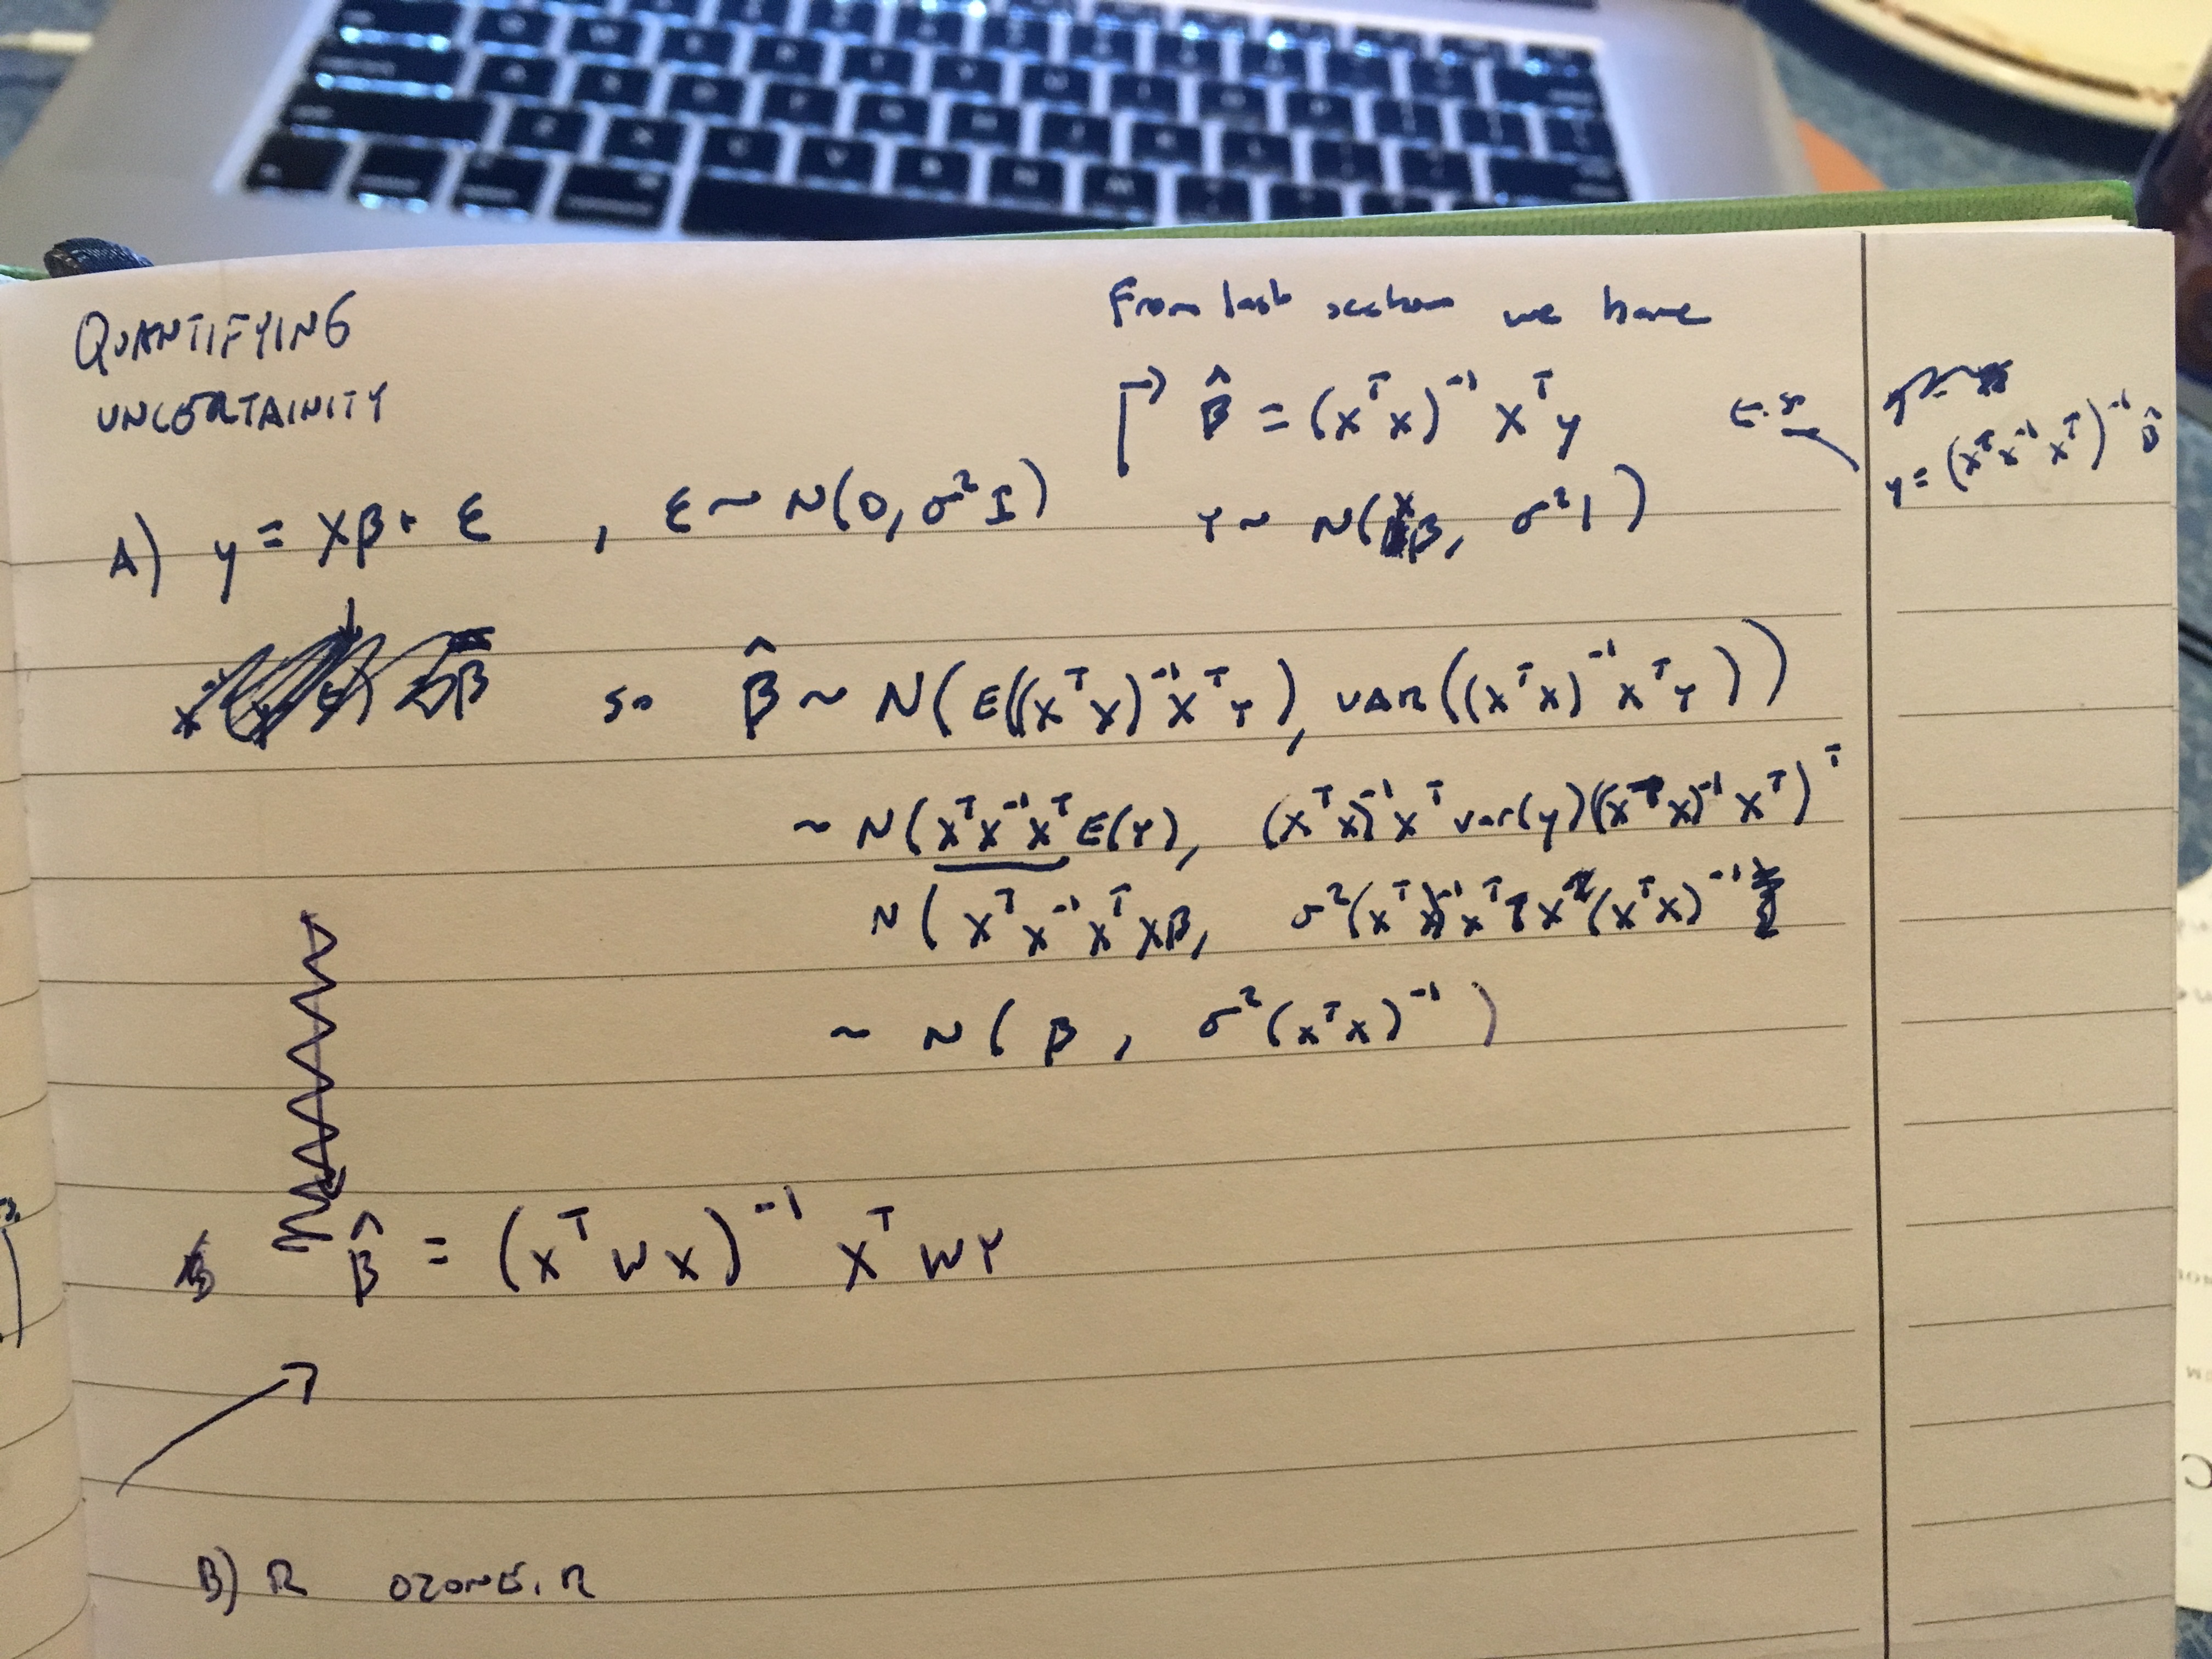 QUANTIFYING
UNCERTAINITY
From last section we have
β̂ = (xᵀx)⁻¹ xᵀy
y = (xᵀx⁻¹ xᵀ)⁻¹ β̂
A) y = Xβ + ε , ε ~ N(0, σ²I)
Y ~ N(Xβ, σ²I)
so β̂ ~ N(E((xᵀx)⁻¹xᵀY), VAR((xᵀx)⁻¹xᵀY))
~ N(xᵀx⁻¹xᵀE(Y), (xᵀx)⁻¹xᵀ var(y)((xᵀx)⁻¹xᵀ)ᵀ
N(xᵀx⁻¹xᵀxβ, σ²(xᵀx)⁻¹xᵀIx(xᵀx)⁻¹
~ N(β, σ²(xᵀx)⁻¹)
β̂ = (xᵀWx)⁻¹ xᵀWY
B) R OZONE.R